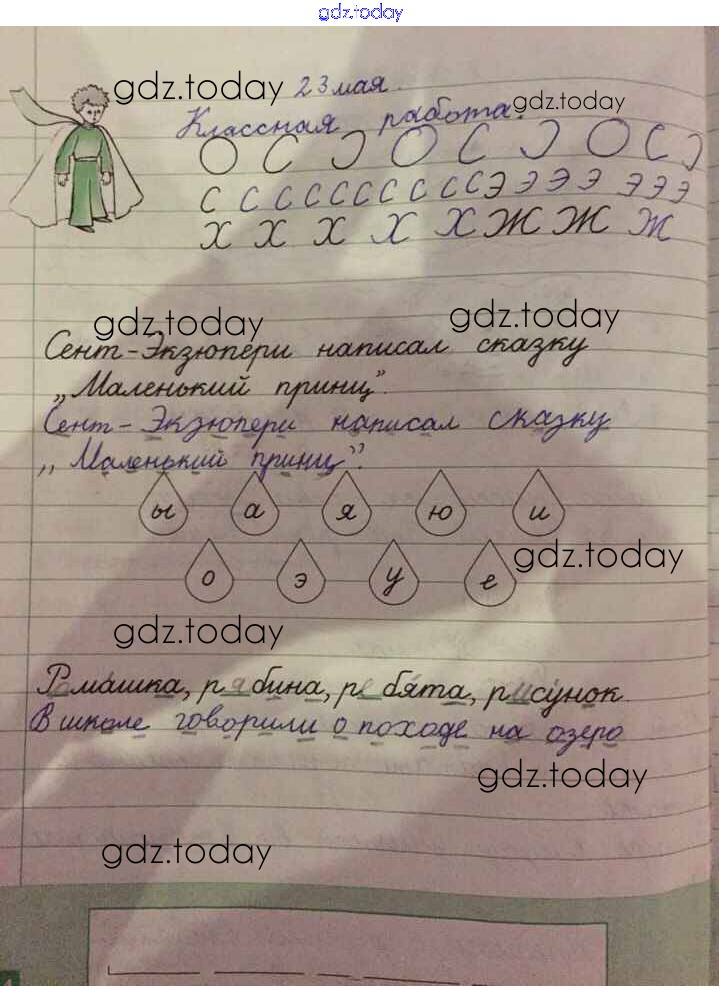 gdz.today
gdz.today 23 мая. gdz.today
Классная работа.
О С Э О С Э О С Э
С С С С С С С С С С Э Э Э Э Э Э Э
Х Х Х Х Х Ж Ж Ж
gdz.today gdz.today
Сент-Экзюпери написал сказку
„Маленький принц".
Сент-Экзюпери написал сказку
„Маленький принц".
ы а я ю и
gdz.today
о э у е
gdz.today
Ромашка, рябина, ребята, рисунок
В школе говорили о походе на озеро
gdz.today
gdz.today